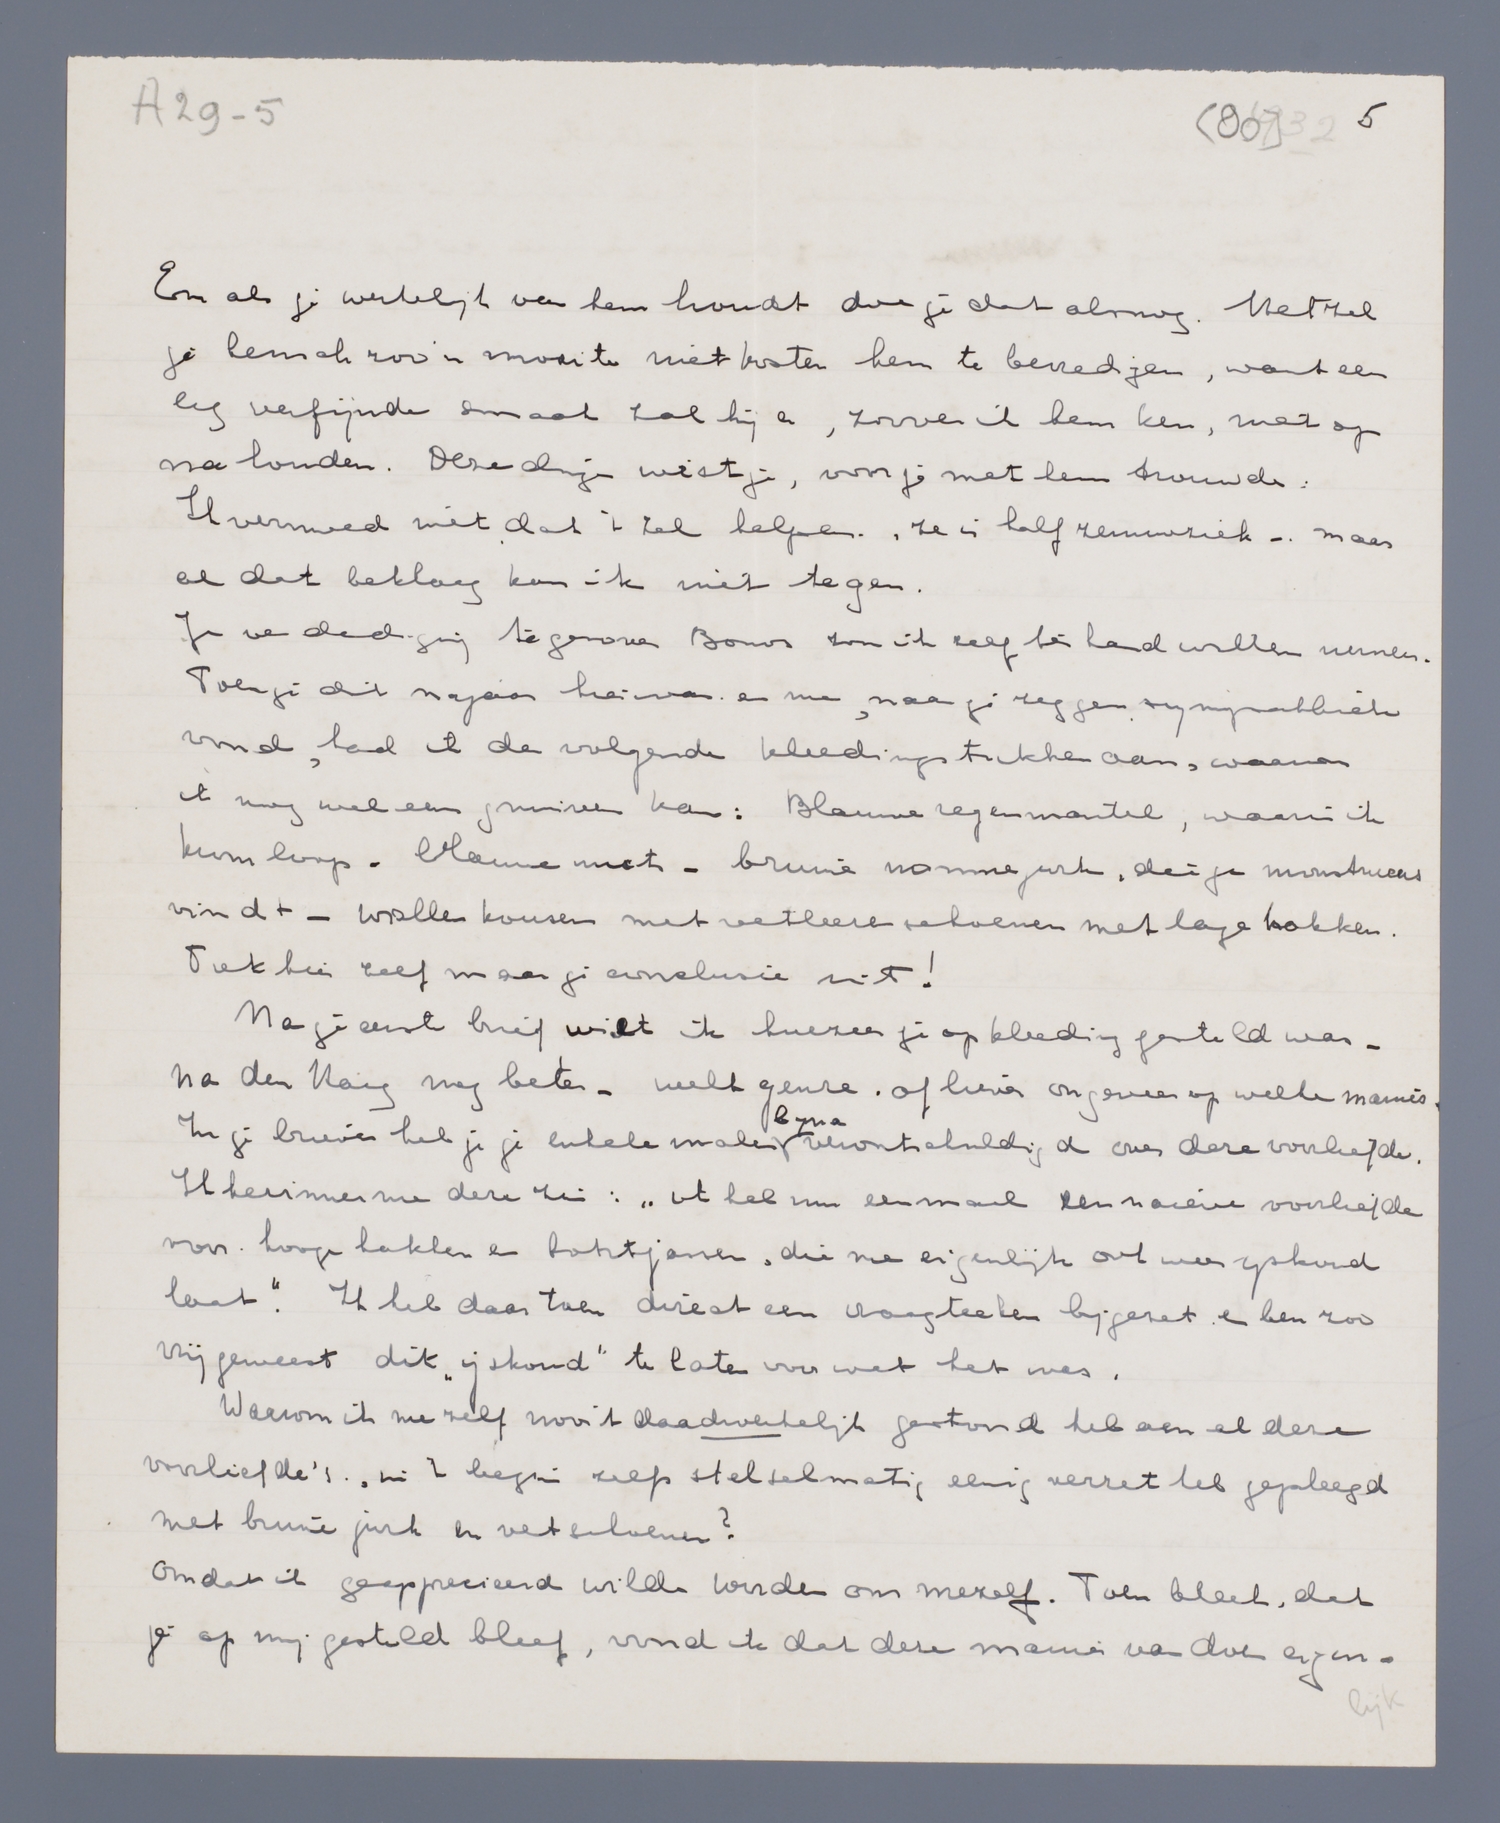 A29-5
(80) 1932 5
En als je werkelijk van hem houdt doe je dat alsnog. Het zal
je heusch zoo'n moeite niet kosten hem te bevredigen, want een
erg verfijnde smaak zal hij er, zoover ik hem ken, niet op
na houden. Deze dingen wist je, voor je met hem trouwde.
Ik vermoed niet dat 't zal helpen, ze is half zenuwziek -. maar
al dat beklaag kan ik niet tegen.
Je verdediging tegenover zou ik zelf ter hand willen nemen.
Toen je dit najaar hier was en me, naar je zeggen, sympathiek
vond, had ik de volgende kleedingstukken aan, waarvan
ik nog wel een gruwen kan: Blauwe regenmantel, waarin ik
krom loop - blauwe muts - bruine nonnejurk, die je monstrueus
vindt - wollen kousen met vetleere schoenen met lage hakken.
Trek hier zelf maar je conclusie uit!
Na je eerste brief wist ik hoezeer je op kleeding gesteld was -
na den Haag nog beter - welk genre. of liever ongeveer op welke manier.
In je brieven heb je je enkele malen bijna verontschuldigd over deze voorliefde.
Ik herinner me deze zin: „ik heb nu eenmaal een naieve voorliefde
voor hooge hakken en bontjassen, die me eigenlijk ook weer ijskoud
laat". Ik heb daar toen direct een vraagteeken bijgezet en ben zoo
vrij geweest dit „ijskoud" te laten voor wat het was.
Waarom ik mezelf nooit daadwerkelijk gestoord heb aan al deze
voorliefde's, in 't begin zelfs stelselmatig eenig verzet heb gepleegd
met bruine jurk en vetschoenen?
Omdat ik geapprecieerd wilde worden om mezelf. Toen bleek, dat
je op mij gesteld bleef, vond ik dat deze manier van doen eigen-
lijk